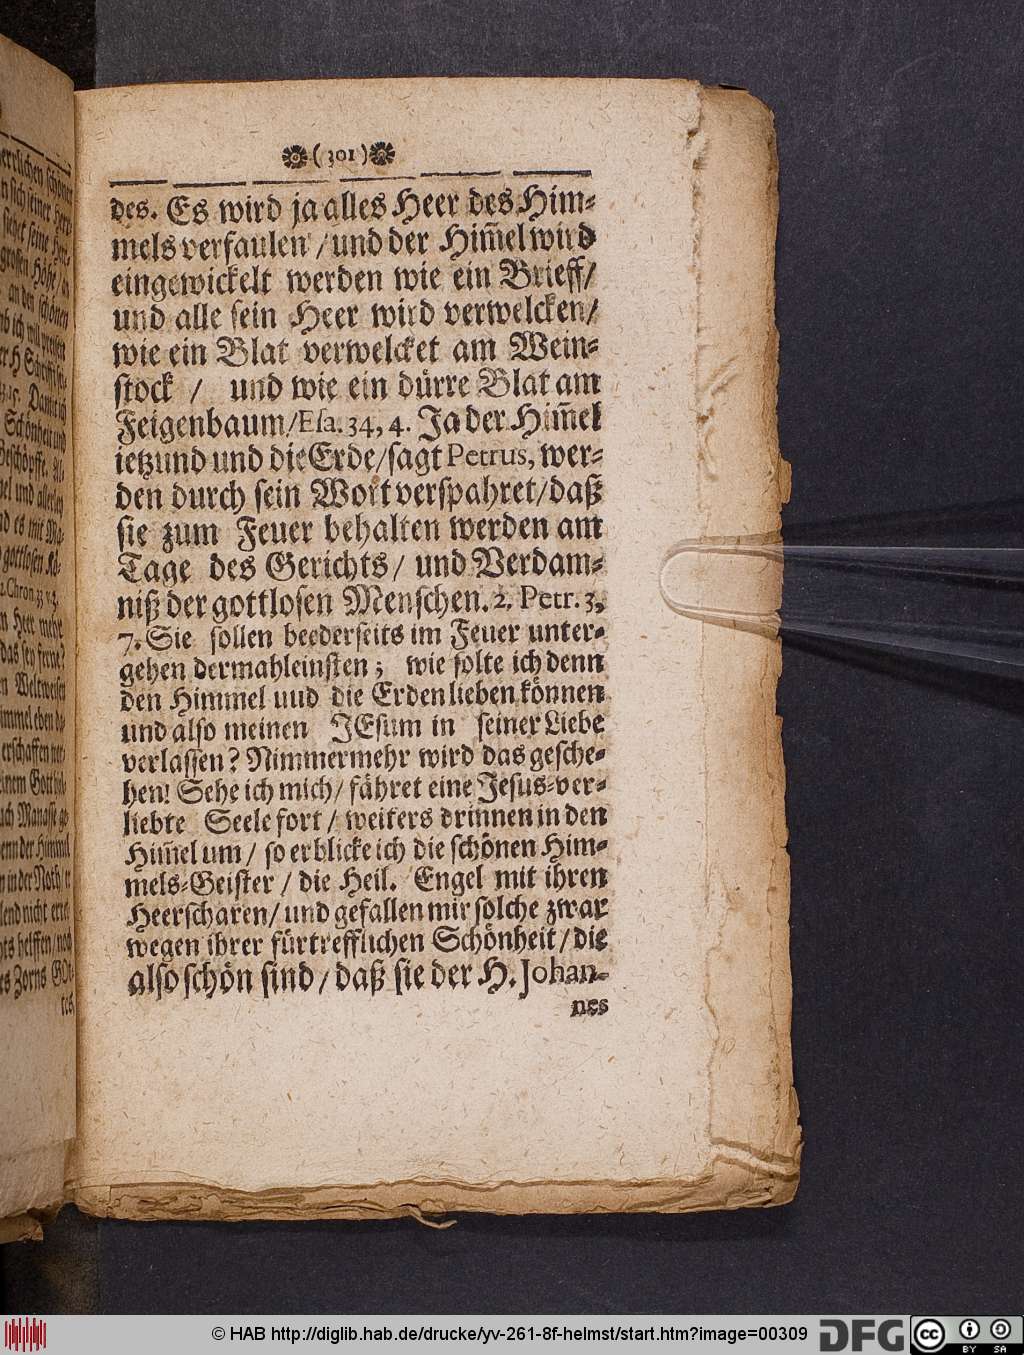 (301)
des. Es wird ja alles Heer des Him-
mels verfaulen / und der Him̃el wird
eingewickelt werden wie ein Brieff/
und alle sein Heer wird verwelcken/
wie ein Blat verwelcket am Wein-
stock / und wie ein dürre Blat am
Feigenbaum/Esa. 34, 4. Ja der Him̃el
ietzund und die Erde/sagt Petrus, wer-
den durch sein Wort verspahret/daß
sie zum Feuer behalten werden am
Tage des Gerichts/ und Verdam-
niß der gottlosen Menschen. 2. Petr. 3,
7. Sie sollen beederseits im Feuer unter-
gehen dermahleinsten; wie solte ich denn
den Himmel uud die Erden lieben können
und also meinen JEsum in seiner Liebe
verlassen? Nimmermehr wird das gesche-
hen! Sehe ich mich/ fähret eine Jesus-ver-
liebte Seele fort/ weiters drinnen in den
Him̃el um/ so erblicke ich die schönen Him-
mels-Geister / die Heil. Engel mit ihren
Heerscharen/ und gefallen mir solche zwar
wegen ihrer fürtrefflichen Schönheit/ die
also schön sind / daß sie der H. Johan-
nes
© HAB http://diglib.hab.de/drucke/yv-261-8f-helmst/start.htm?image=00309
DFG
cc
BY SA